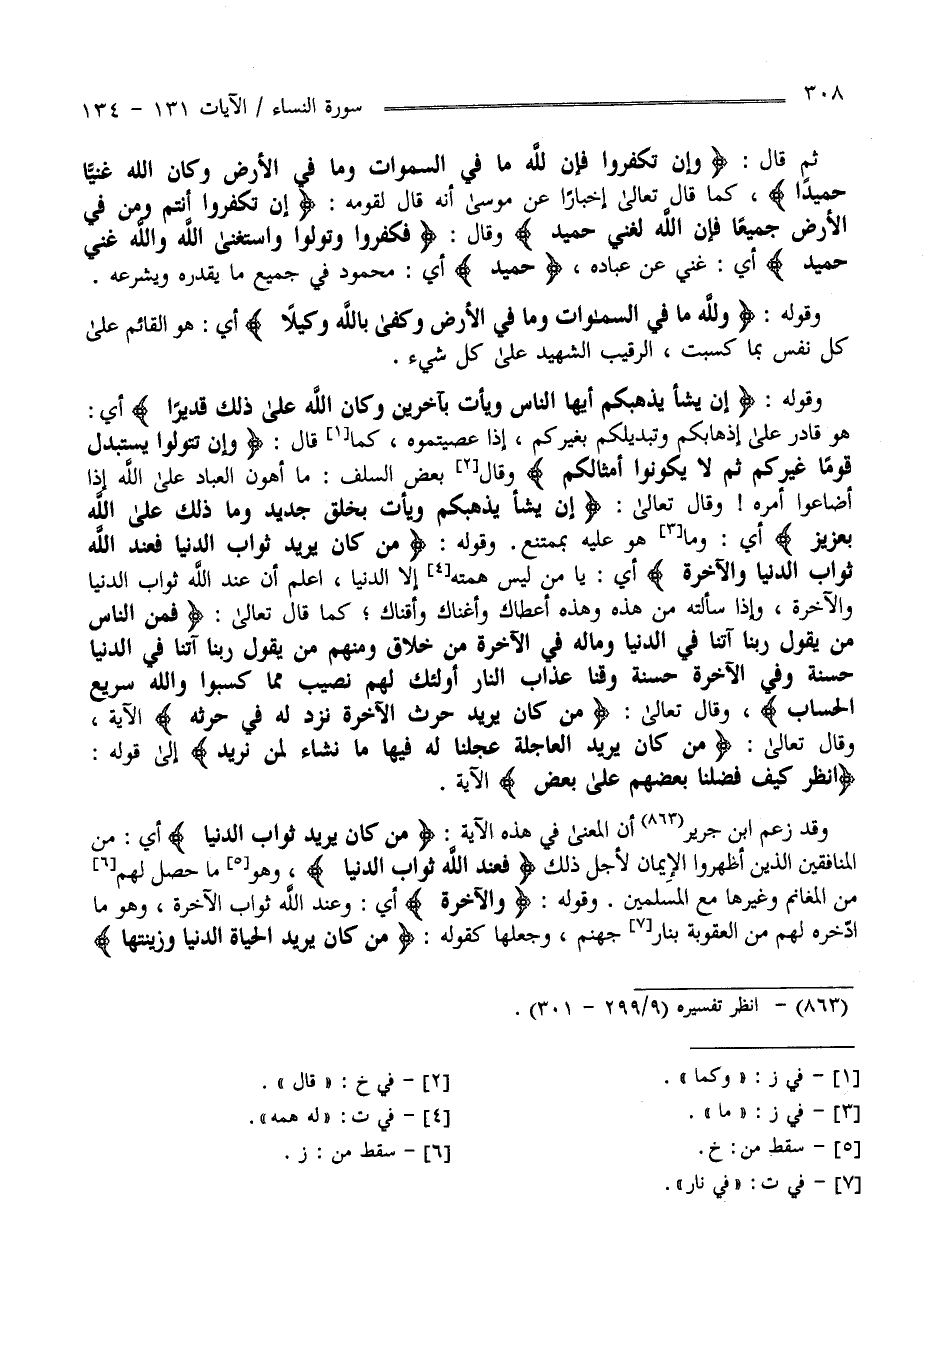 ٣٠٨ سورة النساء / الآيات ١٣١ - ١٣٤
ثم قال : ﴿ وإن تكفروا فإن للَّه ما في السموات وما في الأرض وكان الله غنيًّا
حميدًا ﴾ ، كما قال تعالىٰ إخبارًا عن موسىٰ أنه قال لقومه : ﴿ إن تكفروا أنتم ومن في
الأرض جميعًا فإن اللَّه لغني حميد ﴾ وقال : ﴿ فكفروا وتولوا واستغنىٰ اللَّه واللَّه غني
حميد ﴾ أي : غني عن عباده ، ﴿ حميد ﴾ أي : محمود في جميع ما يقدره ويشرعه .
وقوله : ﴿ وللَّه ما في السمٰوات وما في الأرض وكفىٰ باللَّه وكيلًا ﴾ أي : هو القائم علىٰ
كل نفس بما كسبت ، الرقيب الشهيد علىٰ كل شيء .
وقوله : ﴿ إن يشأ يذهبكم أيها الناس ويأت بآخرين وكان اللَّه علىٰ ذلك قديرًا ﴾ أي :
هو قادر علىٰ إذهابكم وتبديلكم بغيركم ، إذا عصيتموه ، كما[١] قال : ﴿ وإن تتولوا يستبدل
قومًا غيركم ثم لا يكونوا أمثالكم ﴾ وقال[٢] بعض السلف : ما أهون العباد علىٰ اللَّه إذا
أضاعوا أمره ! وقال تعالىٰ : ﴿ إن يشأ يذهبكم ويأت بخلق جديد وما ذلك علىٰ اللَّه
بعزيز ﴾ أي : وما[٣] هو عليه بممتنع. وقوله : ﴿ من كان يريد ثواب الدنيا فعند اللَّه
ثواب الدنيا والآخرة ﴾ أي : يا من ليس همته[٤] إلا الدنيا ، اعلم أن عند اللَّه ثواب الدنيا
والآخرة ، وإذا سألته من هذه وهذه أعطاك وأغناك وأقناك ؛ كما قال تعالىٰ : ﴿ فمن الناس
من يقول ربنا آتنا في الدنيا وماله في الآخرة من خلاق ومنهم من يقول ربنا آتنا في الدنيا
حسنة وفي الآخرة حسنة وقنا عذاب النار أولئك لهم نصيب مما كسبوا والله سريع
الحساب ﴾ ، وقال تعالىٰ : ﴿ من كان يريد حرث الآخرة نزد له في حرثه ﴾ الآية ،
وقال تعالىٰ : ﴿ من كان يريد العاجلة عجلنا له فيها ما نشاء لمن نريد ﴾ إلىٰ قوله :
﴿انظر كيف فضلنا بعضهم علىٰ بعض ﴾ الآية .
وقد زعم ابن جرير(٨٦٣) أن المعنىٰ في هذه الآية : ﴿ من كان يريد ثواب الدنيا ﴾ أي : من
المنافقين الذين أظهروا الإيمان لأجل ذلك ﴿ فعند اللَّه ثواب الدنيا ﴾ ، وهو[٥] ما حصل لهم[٦]
من المغانم وغيرها مع المسلمين . وقوله : ﴿ والآخرة ﴾ أي : وعند اللَّه ثواب الآخرة ، وهو ما
ادّخره لهم من العقوبة بنار[٧] جهنم ، وجعلها كقوله : ﴿ من كان يريد الحياة الدنيا وزينتها ﴾
(٨٦٣) - انظر تفسيره (٢٩٩/٩ - ٣٠١) .
[١] - في ز : « وكما » . [٢] - في خ : « قال » .
[٣] - في ز : « ما » . [٤] - في ت : «له همه» .
[٥] - سقط من: خ . [٦] - سقط من : ز .
[٧] - في ت : «في نار» .